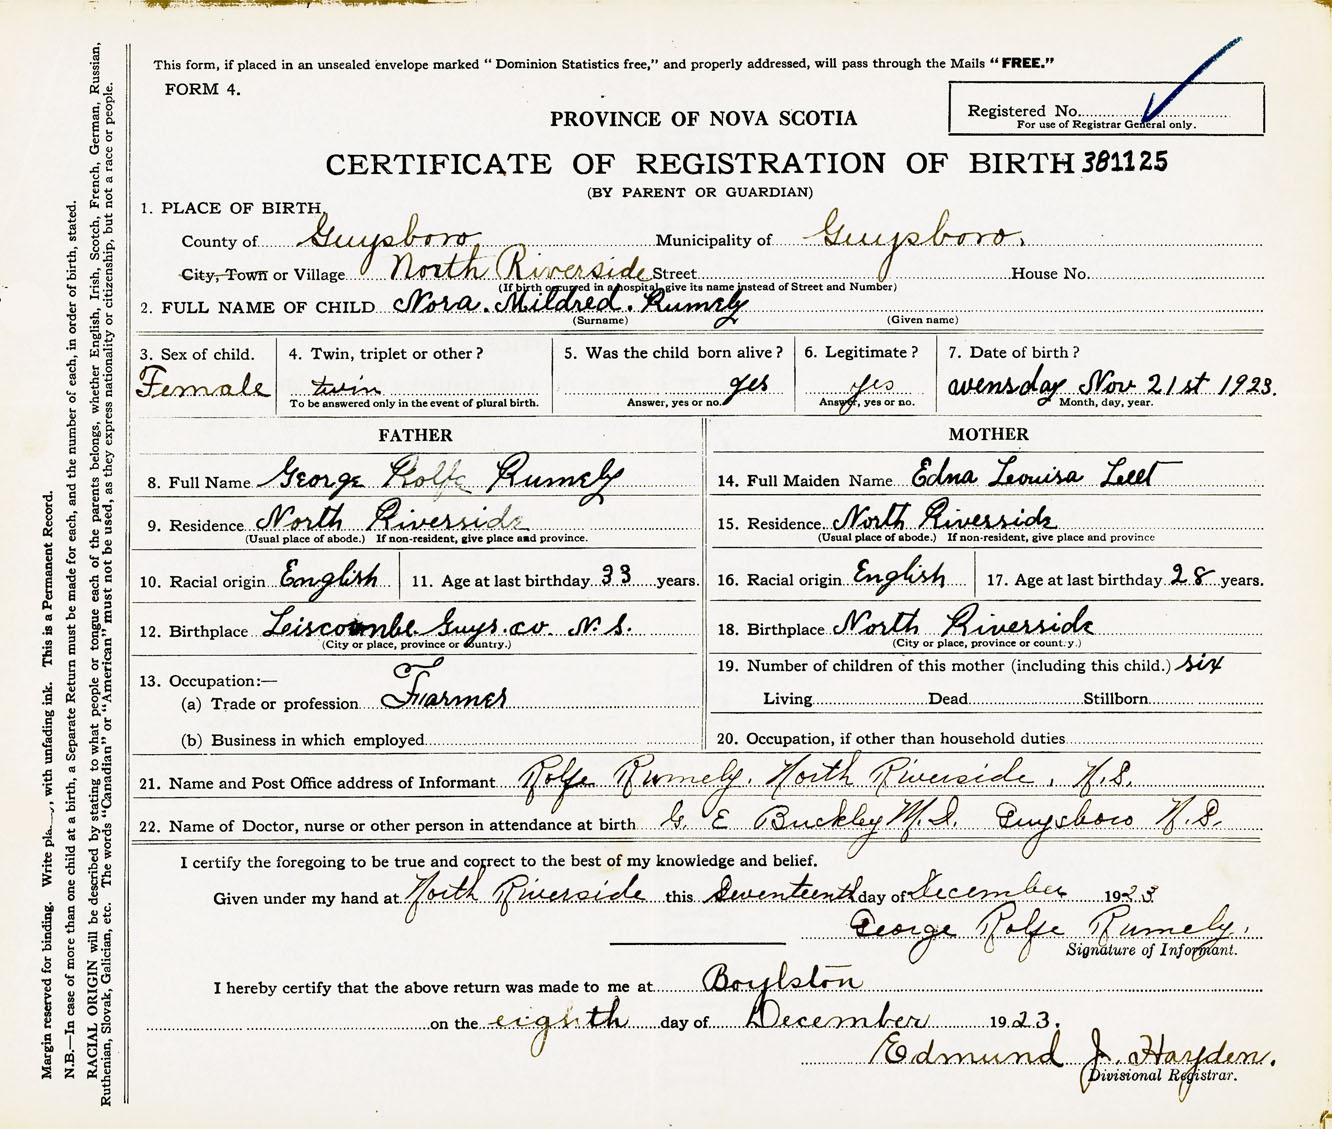 This form, if placed in an unsealed envelope marked "Dominion Statistics free," and properly addressed, will pass through the Mails "FREE."
FORM 4.
Registered No.
For use of Registrar General only.
PROVINCE OF NOVA SCOTIA
CERTIFICATE OF REGISTRATION OF BIRTH 381125
(BY PARENT OR GUARDIAN)
1. PLACE OF BIRTH
County of Guysboro Municipality of Guysboro,
City, Town or Village North Riverside Street House No.
(If birth occurred in a hospital, give its name instead of Street and Number)
2. FULL NAME OF CHILD Nora. Mildred. Rumely
(Surname) (Given name)
3. Sex of child. 4. Twin, triplet or other? 5. Was the child born alive? 6. Legitimate? 7. Date of birth?
Female twin yes yes wensday Nov 21st 1923.
To be answered only in the event of plural birth. Answer, yes or no. Answer, yes or no. Month, day, year.
FATHER MOTHER
8. Full Name George Rolfe Rumely 14. Full Maiden Name Edna Leouisa Leet
9. Residence North Riverside 15. Residence North Riverside
(Usual place of abode.) If non-resident, give place and province. (Usual place of abode.) If non-resident, give place and province
10. Racial origin English 11. Age at last birthday 33 years. 16. Racial origin English 17. Age at last birthday 28 years.
12. Birthplace Liscombe Guys. co. N. S. 18. Birthplace North Riverside
(City or place, province or country.) (City or place, province or country.)
19. Number of children of this mother (including this child.) six
13. Occupation:—
(a) Trade or profession Farmer Living Dead Stillborn
(b) Business in which employed 20. Occupation, if other than household duties
21. Name and Post Office address of Informant Rolfe Rumely. North Riverside, N.S.
22. Name of Doctor, nurse or other person in attendance at birth G. E Buckley M.D. Guysboro N.S.
I certify the foregoing to be true and correct to the best of my knowledge and belief.
Given under my hand at North Riverside this Seventeenth day of December 1923
George Rolfe Rumely.
Signature of Informant.
I hereby certify that the above return was made to me at Boylston
on the eighth day of December 1923.
Edmund J. Hayden.
Divisional Registrar.
Margin reserved for binding. Write with unfading ink. This is a Permanent Record.
N.B.—In case of more than one child at a birth, a Separate Return must be made for each, and the number of each, in order of birth, stated.
RACIAL ORIGIN will be described by stating to what people or tongue each of the parents belongs, whether English, Irish, Scotch, French, German, Russian,
Ruthenian, Slovak, Galician, etc. The words "Canadian" or "American" must not be used, as they express nationality or citizenship, but not a race or people.